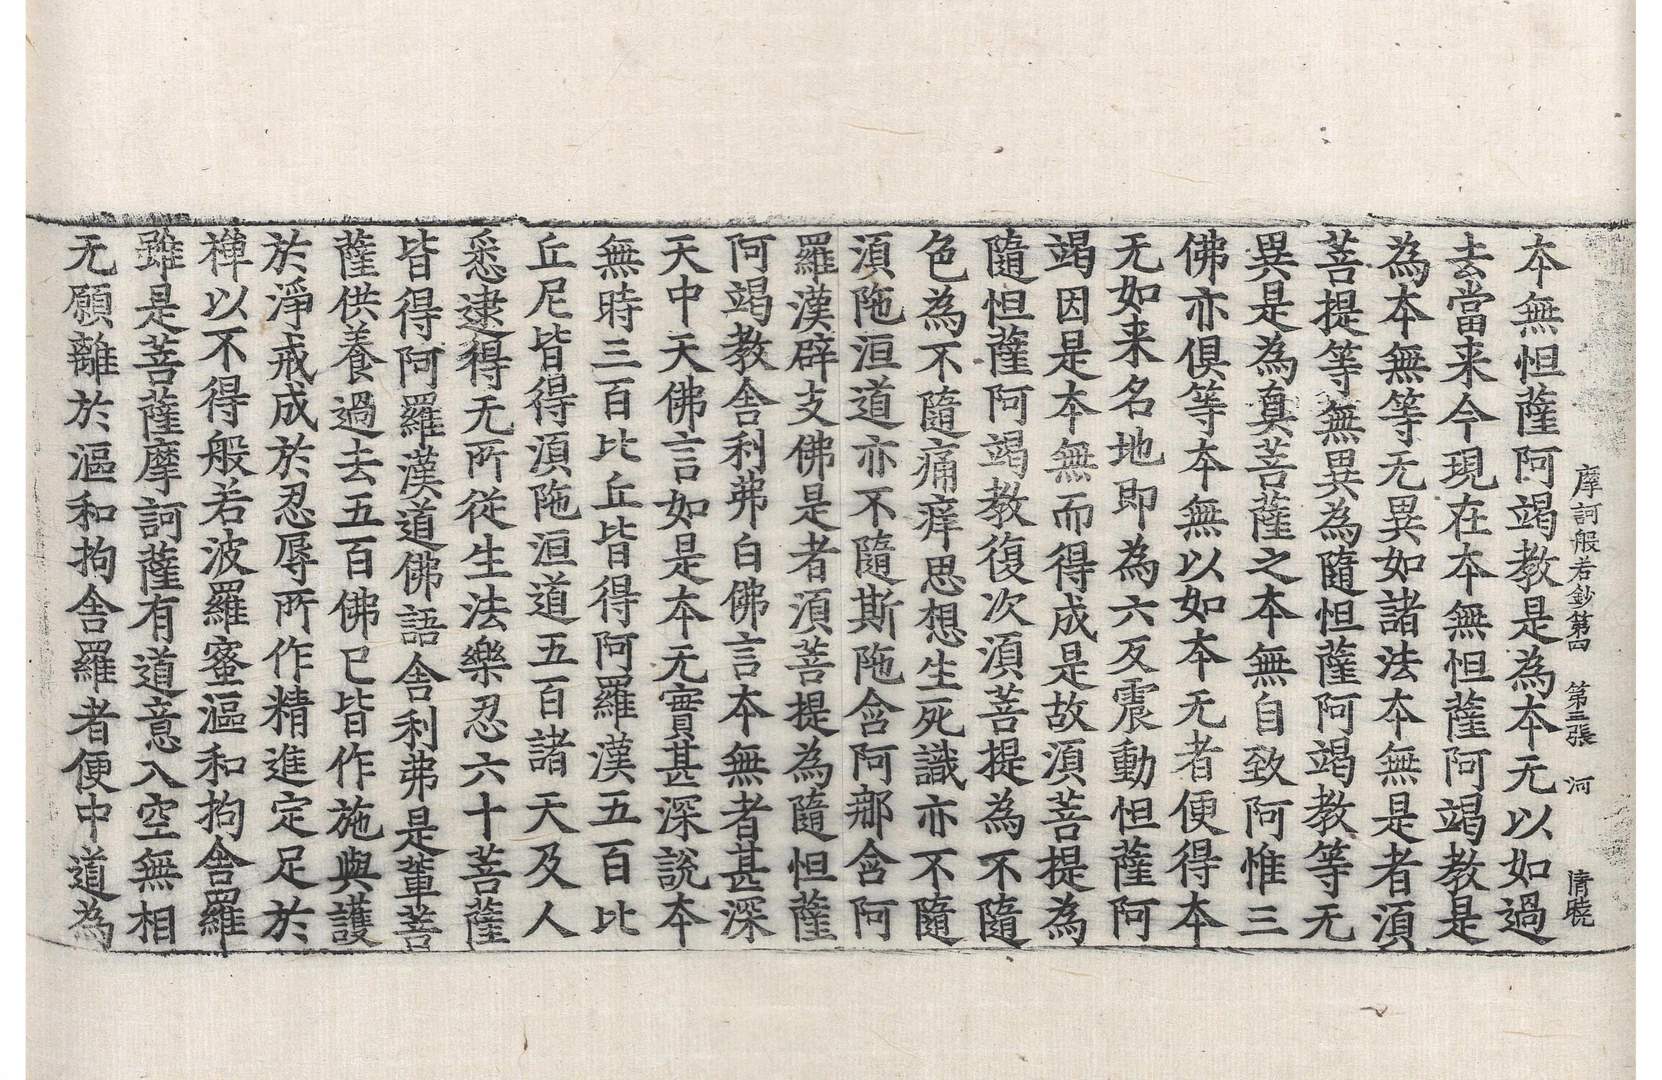 摩訶般若鈔第四　第三張　河　清曉
本無怛薩阿竭教是為本无以如過
去當来今現在本無怛薩阿竭教是
為本無等无異如諸法本無是者湏
菩提等無異為隨怛薩阿竭教等无
異是為真菩薩之本無自致阿惟三
佛亦俱等本無以如本无者便得本
无如来名地即為六反震動怛薩阿
竭因是本無而得成是故湏菩提為
隨怛薩阿竭教復次湏菩提為不隨
色為不隨痛痒思想生死識亦不隨
湏陁洹道亦不隨斯陁含阿那含阿
羅漢辟支佛是者湏菩提為隨怛薩
阿竭教舎利弗白佛言本無者甚深
天中天佛言如是本无實甚深說本
無時三百比丘皆得阿羅漢五百比
丘尼皆得湏陁洹道五百諸天及人
悉逮得无所從生法樂忍六十菩薩
皆得阿羅漢道佛語舎利弗是輩菩
薩供養過去五百佛已皆作施與護
於淨戒成於忍辱所作精進定足於
禅以不得般若波羅蜜漚和拘舎羅
雖是菩薩摩訶薩有道意入空無相
无願離於漚和拘舎羅者便中道為